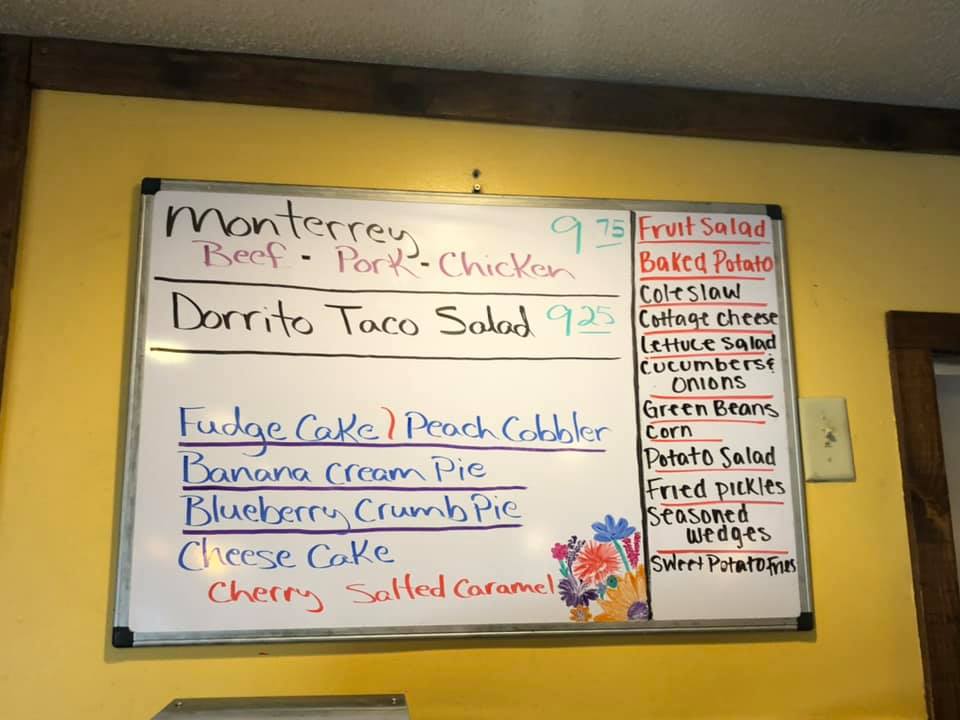 Monterrey 9 75
Beef - Pork - Chicken
Dorrito Taco Salad 9 25
Fudge Cake ) Peach Cobbler
Banana Cream Pie
Blueberry Crumb Pie
Cheese Cake
Cherry Salted Caramel
Fruit Salad
Baked Potato
Coleslaw
Cottage Cheese
Lettuce Salad
Cucumbers &
Onions
Green Beans
Corn
Potato Salad
Fried pickles
Seasoned
wedges
Sweet Potato Fries